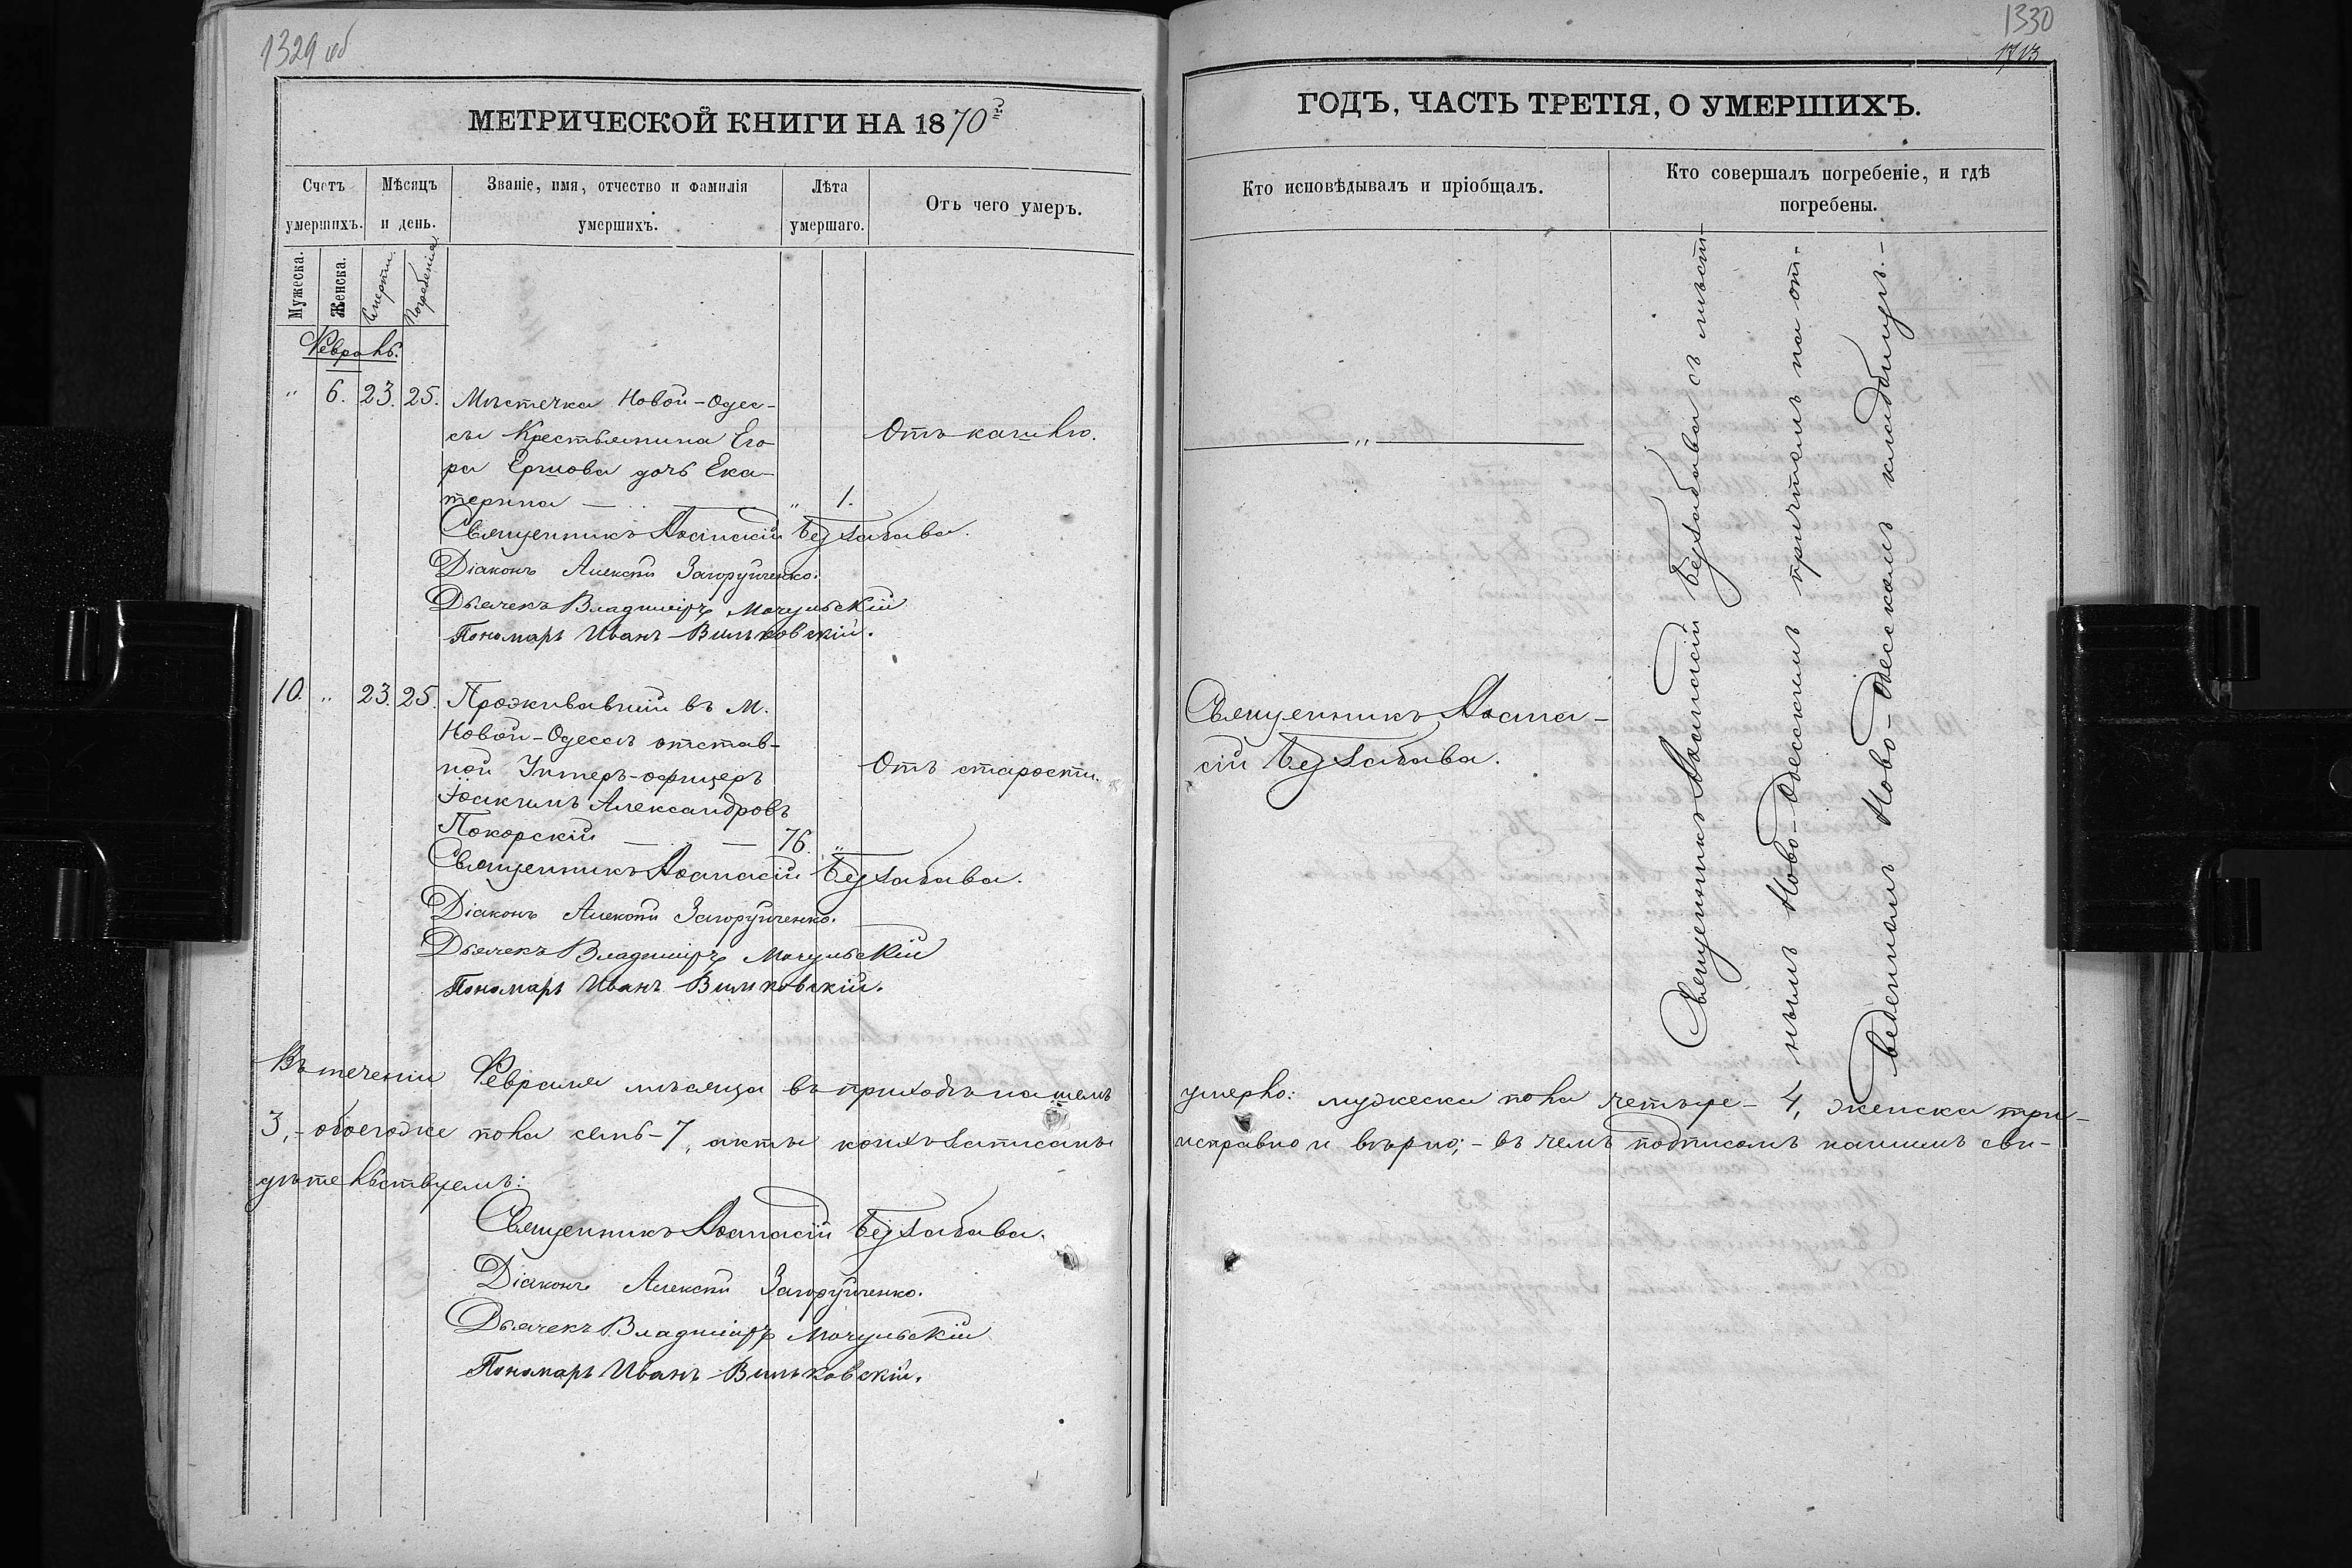 1329 об
МЕТРИЧЕСКОЙ КНИГИ НА 1870й
Счетъ умершихъ.
Мѣсяцъ и день.
Званіе, имя, отчество и фамилія умершихъ.
Лѣта умершаго.
Отъ чего умеръ.
Мужеска.
Женска.
Смерти.
Погребенія.
Февраль.
" 6. 23. 25. Мѣстечка Новой-Одес-
сы Крестьянина Его-
Отъ кашлю.
ра дочь Ека-
терина — " 1.
Священникъ Аѳанасій Беззабава.
Діаконъ Алексѣй Загоруйченко.
Дьячекъ Владиміръ Мочульскій
Пономарь Иванъ Вильковскій.
10. " 23. 25. Проживавшій въ м.
Новой-Одессѣ отстав-
ной Унтеръ-офицеръ
Отъ старости.
Іоакимъ Александровъ
Покорскій — — 76. "
Священникъ Аѳанасій Беззабава.
Діаконъ Алексѣй Загоруйченко.
Дьячекъ Владиміръ Мочульскій
Пономарь Иванъ Вильковскій.
Въ теченіи Февраля мѣсяца въ приходѣ нашемъ
3,- обоегоже пола семь-7, акты коихъ записаны
дѣтельствуемъ:
Священникъ Аѳанасій Беззабава.
Діаконъ Алексѣй Загоруйченко.
Дьячекъ Владиміръ Мочульскій
Пономарь Иванъ Вильковскій.
1330
1713
ГОДЪ, ЧАСТЬ ТРЕТІЯ, О УМЕРШИХЪ.
Кто исповѣдывалъ и пріобщалъ.
Кто совершалъ погребеніе, и гдѣ
погребены.
— " —
Священникъ Аѳана-
сій Беззабава.
Священникъ Аѳанасій Беззабава съ мѣст-
нымъ Ново-Одесскимъ причтомъ на от-
веденномъ Ново-Одесскомъ кладбищѣ.-
умерло: мужеска пола четыре- 4, женска три-
исправно и вѣрно;- въ чемъ подписомъ нашимъ сви-